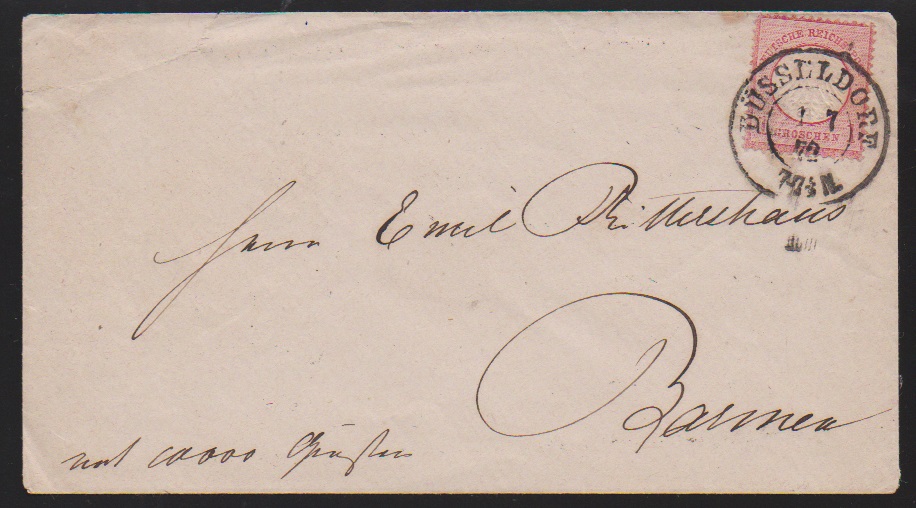 DEUTSCHE REICHS
GROSCHEN
DÜSSELDORF
1 7
72
7-7½ N.
Herrn Emil Rittershaus
Barmen
mit 10000 Grüßen